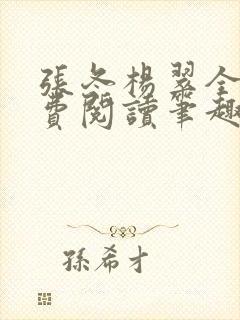 張冬楊翠全
費閱讀筆趣
孫希才